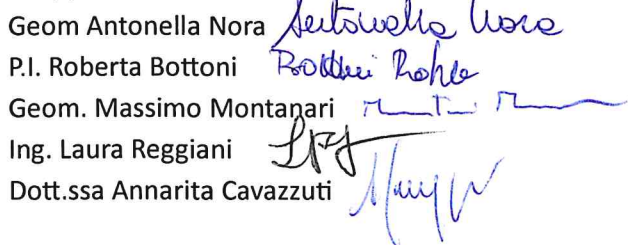 Geom Antonella Nora Antonella Nora
P.I. Roberta Bottoni
Geom. Massimo Montanari
Ing. Laura Reggiani
Dott.ssa Annarita Cavazzuti